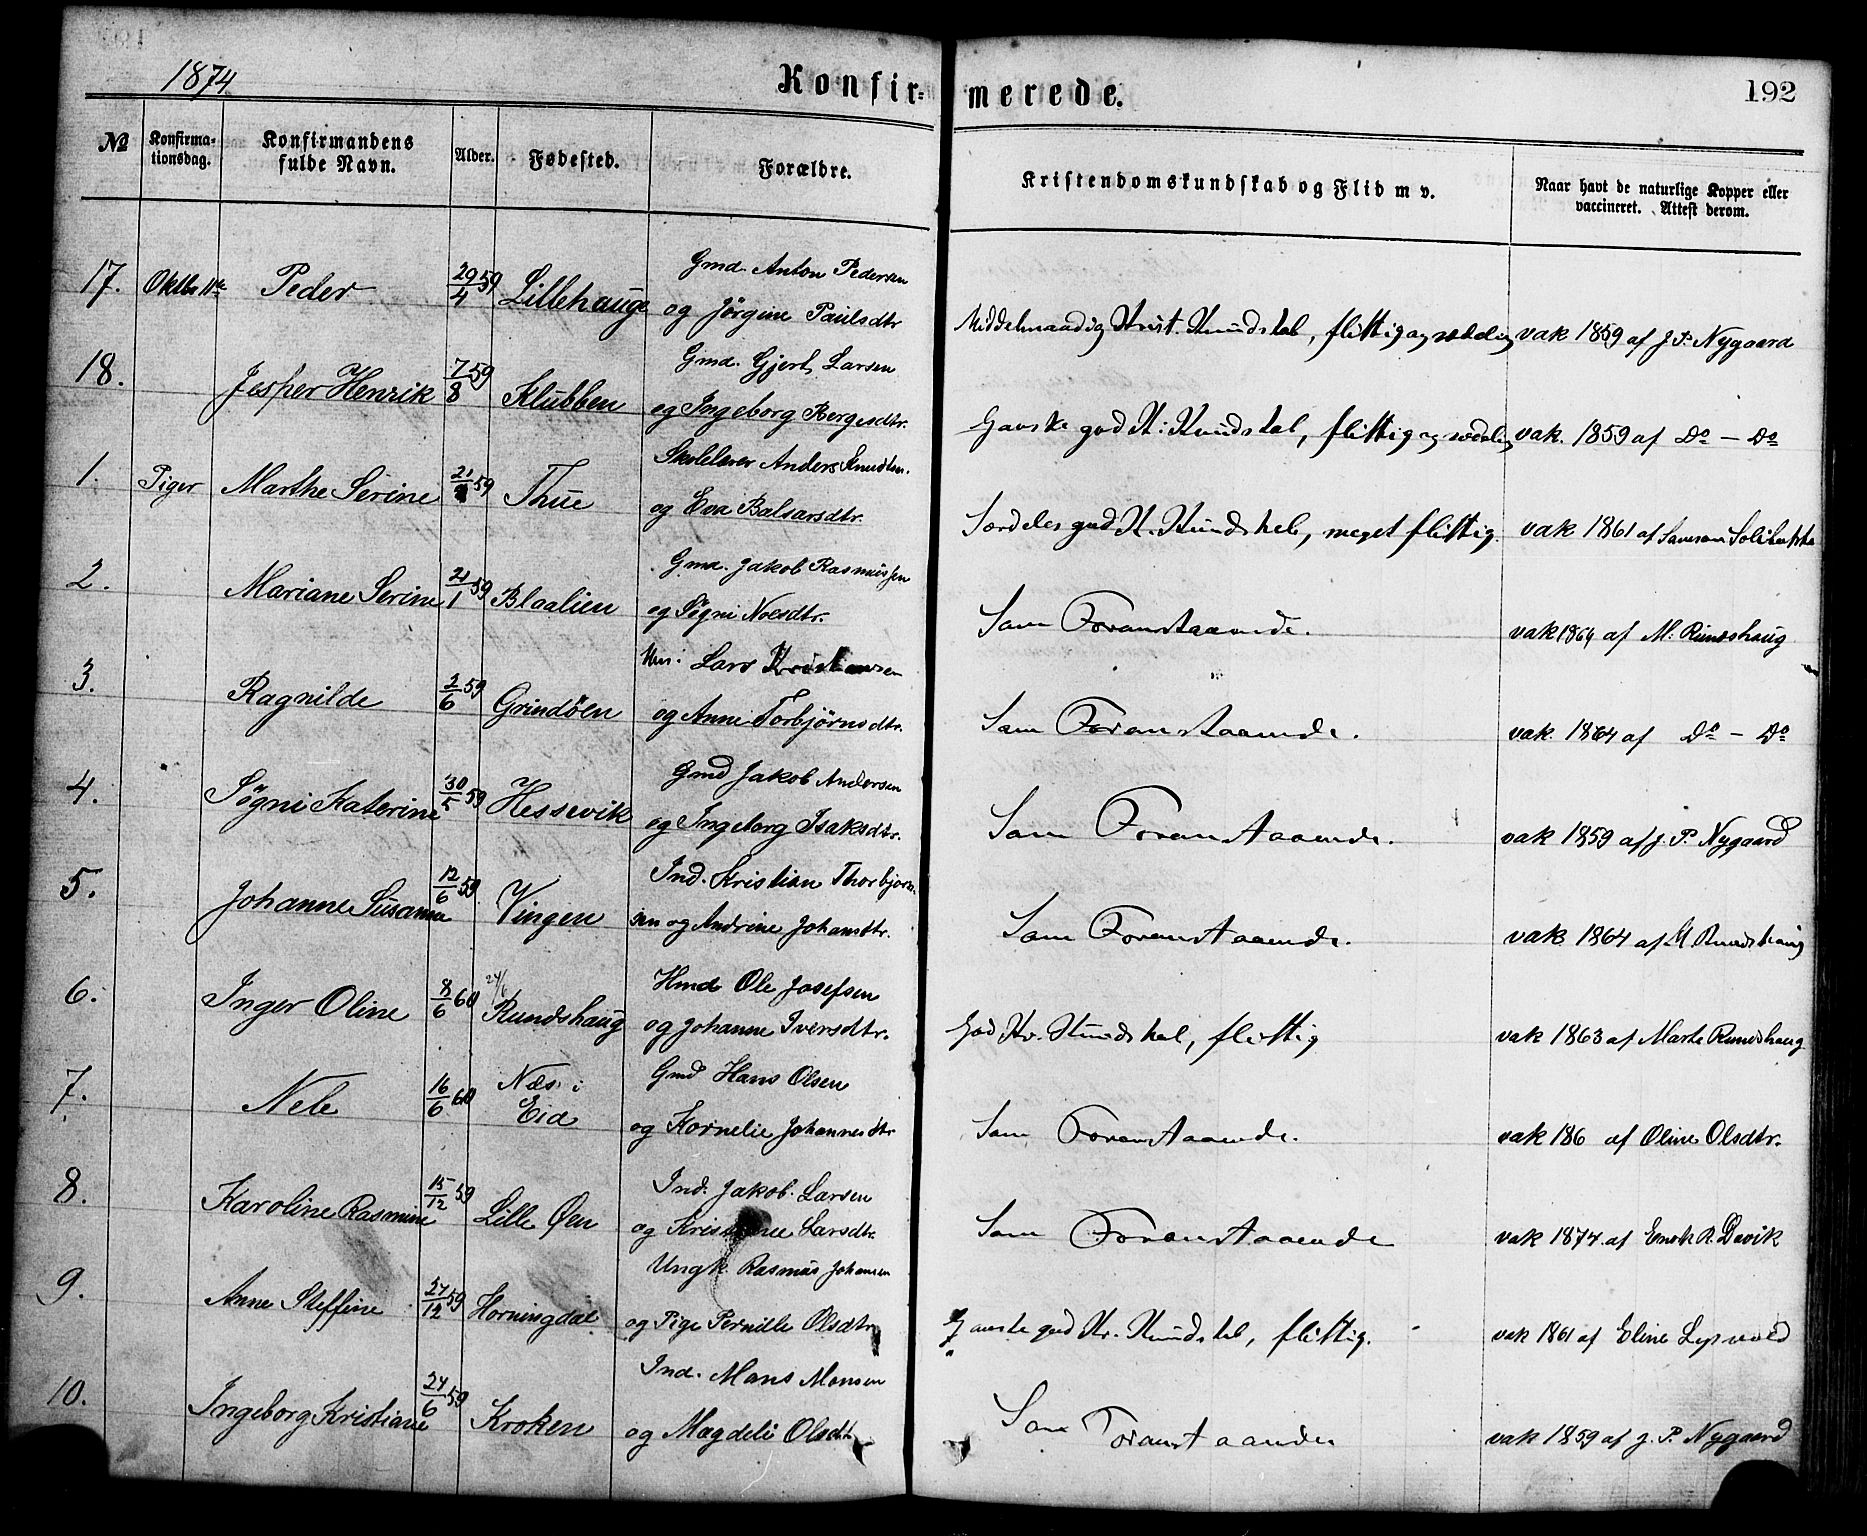 1874
Konfir-
merede.
192
№
Konfirma-
tionsdag.
Konfirmandens
fulde Navn.
Alder.
Fødested.
Forældre.
Kristendomskundskab og Flid m v.
Naar havt de naturlige Kopper eller
vaccineret. Attest derom.
17. Oktbr 11te Peder 29/4 59 Lillehauge
Gmd. Anton Pedersen
og Jörgine Paulsdtr
Middelmaadig Krist. Kundskab, flittig og sædelig vak 1859 af J. P. Nygaard
18. Jesper Henrik 7/8 59 Klubben
Gmd. Gjert Larsen
og Ingeborg Børgesdtr.
Ganske god K: Kundskab, flittig og sædelig vak. 1859 af Do - Do
1. Piger Marthe Serine 21/ 59 Thue
Skolelærer Anders Knudsen.
og Eva Balsarsdtr.
Særdeles god K. Kundskab, meget flittig. vak 1861 af
2. Mariane Serine 21/1 59 Blaalien
Gmd. Jakob Rasmussen
og Sögni Noesdtr.
Som Foranstaaende. vak 1864 af M: Rundshaug
3. Ragnilde 2/6 59 Grindöen
Hus: Lars Kristiansen
og Anne Torbjörnsdtr.
Som Foranstaaende. vak. 1864 af Do - Do
4. Sögni Katerine 30/5 59 Hessevik
Gmd Jakob Andersen
og Ingeborg Isaksdtr.
Som Foranstaaende. vak 1859 af J. P. Nygaard
5. Johanne Susanna 12/6 59 Vingen
Ind. Kristian Thorbjörn-
sen og Andrine Johansdtr.
Som Foranstaaende. vak 1864 af M. Rundshaug
6. Inger Oline 8/6 60 24/6 Rundshaug
Hmd Ole Josefsen
og Johanne Iversdtr.
God Kr. Kundskab, flittig vak 1863 af Marte Rundshaug
7. Nele 16/6 60 Næs i
Eid
Gmd Hans Olsen
og Kornelie Johannesdtr
Som Foranstaaende. vak 186 af Oline Olsdtr.
8. Karoline Rasmine 15/12 59 Lille Øen
Ind. Jakob Larsen
og Larsdtr.
Som Foranstaaende vak 1874 af Enok R. Davik
9. Anne Steffine 27/12 59 Horningdal
Ungk. Rasmus Johansen
og Pige Pernille Olsdtr
Ganske god Kr. Kundskab, flittig. vak 1861 af Eline
10. Ingeborg Kristiane 24/6 59 Kroken
Ind. Mons Monsen
og Magdeli Olsdtr
Som Foranstaaende vak 1859 af J. P. Nygaard